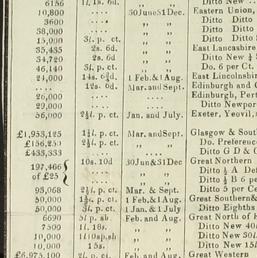 6186 1l. 18s. 6d. Ditto New
10,800 30June31Dec. Eastern Union,
3600 .... ,, ,, Ditto Ditto
38,000 .... ,, ,, Ditto Ditto
15,000 3l. p. ct. ,, ,, Ditto Ditto
35,435 2s. 6d. ,, ,, East Lancashire
34,720 2s. 6d. ,, ,, Ditto New
46,140 3l. p. ct. ,, ,, Do. 6 per Ct.
24,000 1 Feb.&1 Aug. East Lincolnshi
.... 12s. 6d. Mar. and Sept. Edinburgh and
26,000 .... Edinburgh, Pert
29,000 .... Ditto Newpor
56,000 Jan. and July. Exeter, Yeovil,
£1,953,125 Mar. and Sept. Glasgow & Sout
£156,250 ,, ,, Do. Preference
£433,333 .... Ditto G D & C
197,466 10s. 10d 30Jun&31Dec Great Northern
of £25 ,, ,, Ditto ½ A Def
,, ,, Ditto ½ B 6 p
93,068 Mar. & Sept. Ditto 5 per Ce
50,000 1 Feb.&1 Aug Great Southern&
50,000 3l. p. ct. 1 Jan. & 1 July Ditto Eighths
6690 5l. p. sh Feb. and Aug. Great North of
7500 1l. 18s. ,, ,, Ditto New 40l
10,000 ,, ,, Ditto New 30l
10,000 15s. ,, ,, Ditto New 15l
£6,975,100 2l. p. ct. Feb. and Aug. Great Western